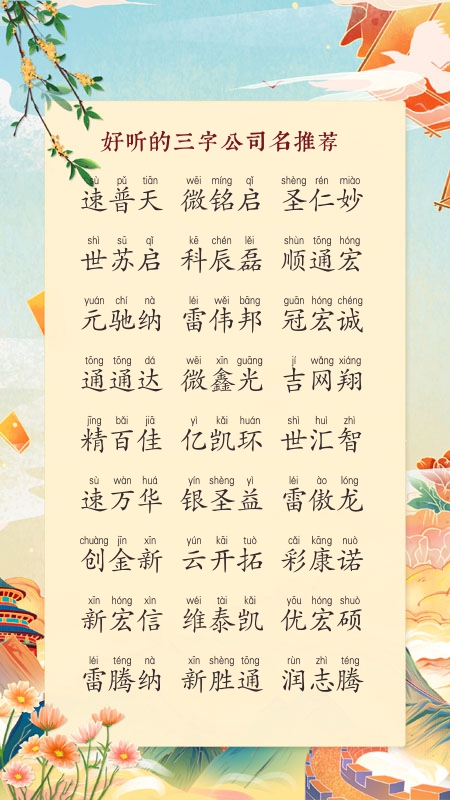 好听的三字公司名推荐
sù pǔ tiān wēi míng qǐ shèng rén miào
速普天 微铭启 圣仁妙
shì sū qǐ kē chén lěi shùn tōng hóng
世苏启 科辰磊 顺通宏
yuán chí nà léi wěi bāng guān hóng chéng
元驰纳 雷伟邦 冠宏诚
tōng tōng dá wēi xīn guāng jí wǎng xiáng
通通达 微鑫光 吉网翔
jīng bǎi jiā yì kǎi huán shì huì zhì
精百佳 亿凯环 世汇智
sù wàn huá yín shèng yì léi ào lóng
速万华 银圣益 雷傲龙
chuàng jīn xīn yún kāi tuò cǎi kāng nuò
创金新 云开拓 彩康诺
xīn hóng xìn wéi tài kǎi yōu hóng shuò
新宏信 维泰凯 优宏硕
léi téng nà xīn shèng tōng rùn zhì téng
雷腾纳 新胜通 润志腾